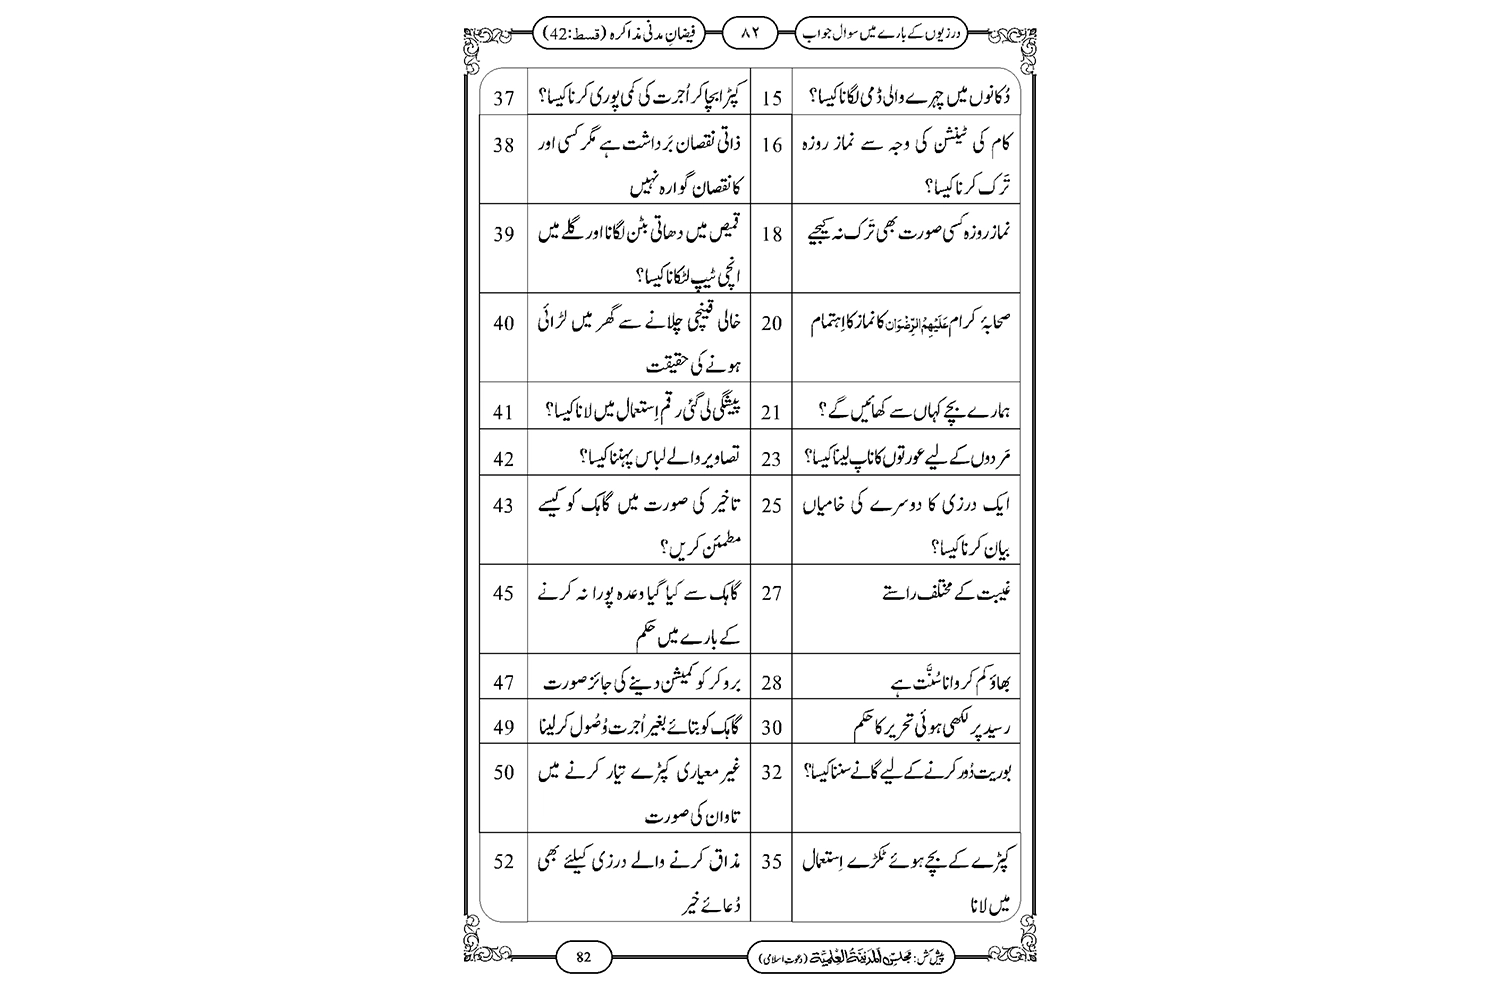 درزیوں کے بارے میں سوال جواب
۸۲
فیضانِ مدنی مذاکرہ (قسط:42)
دُکانوں میں چہرے والی ڈمی لگانا کیسا؟
15
کام کی ٹینشن کی وجہ سے نماز روزہ
تَرک کرنا کیسا؟
16
نماز روزہ کسی صورت بھی تَرک نہ کیجیے
18
صحابۂ کرام عَلَیْہِمُ الرِّضْوَان کا نماز کا اِہتمام
20
ہمارے بچے کہاں سے کھائیں گے؟
21
مَردوں کے لیے عورتوں کا ناپ لینا کیسا؟
23
ایک درزی کا دوسرے کی خامیاں
بیان کرنا کیسا؟
25
غیبت کے مختلف راستے
27
بھاؤ کم کروانا سُنَّت ہے
28
رسید پر لکھی ہوئی تحریر کا حکم
30
بوریت دُور کرنے کے لیے گانے سننا کیسا؟
32
کپڑے کے بچے ہوئے ٹکڑے اِستعمال
میں لانا
35
کپڑا بچا کر اُجرت کی کمی پوری کرنا کیسا؟
37
ذاتی نقصان بَرداشت ہے مگر کسی اور
کا نقصان گوارہ نہیں
38
قمیص میں دھاتی بٹن لگانا اور گلے میں
انچی ٹیپ لٹکانا کیسا؟
39
خالی قینچی چلانے سے گھر میں لڑائی
ہونے کی حقیقت
40
پیشگی لی گئی رقم اِستعمال میں لانا کیسا؟
41
تصاویر والے لباس پہننا کیسا؟
42
تاخیر کی صورت میں گاہک کو کیسے
مطمئن کریں؟
43
گاہک سے کیا گیا وعدہ پورا نہ کرنے
کے بارے میں حکم
45
بروکر کو کمیشن دینے کی جائز صورت
47
گاہک کو بتائے بغیر اُجرت وُصُول کر لینا
49
غیر معیاری کپڑے تیار کرنے میں
تاوان کی صورت
50
مذاق کرنے والے درزی کیلئے بھی
دُعائے خیر
52
پیش کش: مجلس اَلْمَدِیْنَۃُ الْعِلْمِیَّۃ (دعوتِ اسلامی)
82